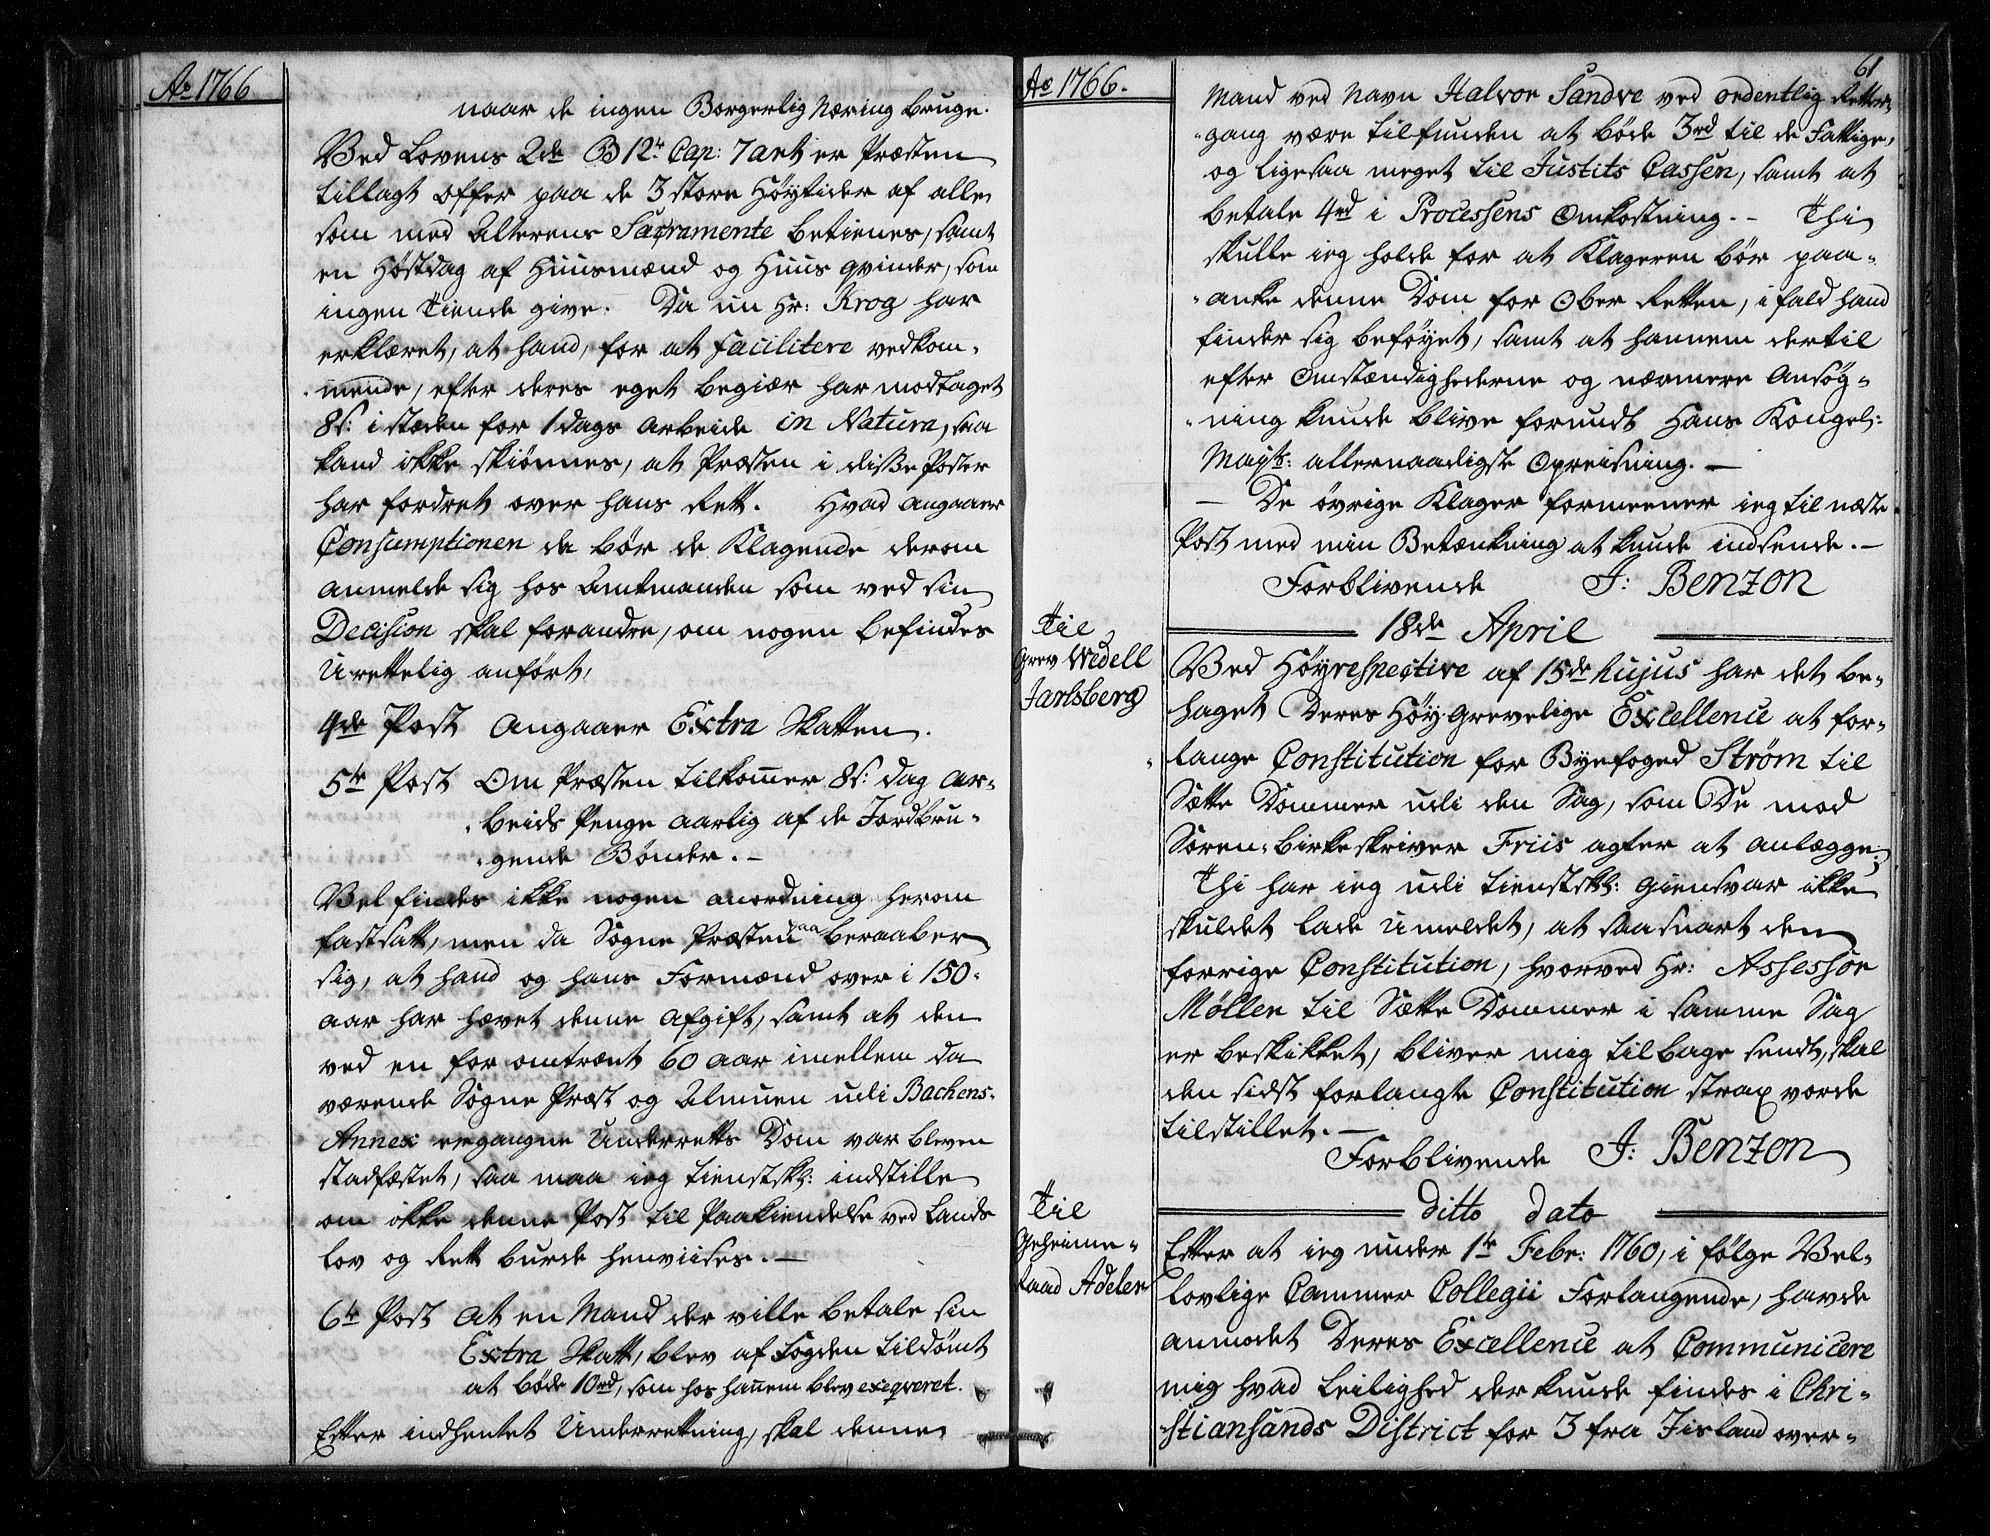 Ao 1766
naar de ingen Borgerlig Næring bruge.
Ved Lovens 2de B 12te Cap: 7 art er Præsten
tillagt offer paa de 3 store Høytider af alle
som med Alterens Sacramente betienes, samt
en Høstdag af Huusmænd og Huus qvinder, som
ingen Tiende give. Da nu Hr: Krog har
erklæret, at hand, for at facilitere vedkom-
mende, efter deres eget begiær har modtaget
8s: i stæden for 1 dags Arbeide in Natura, saa
kand ikke skiønnes, at Præsten i disse Poster
har fordret over hans Rett. Hvad angaaer
Consumptionen da bør de Klagende derom
anmelde sig hos Amtmanden som ved sin
Decision skal forandre, om nogen befindes
Urettelig anført,
4de Post Angaaer Extra Skatten.
5te Post Om Præsten tilkommer 8s: dag Ar-
beids Penge aarlig af de Jordbru-
gende Bønder. -
Vel findes ikke nogen anordning herom
fastsatt, men da Sogne Præsten paa beraaber
sig, at hand og hans Formænd over i 150
aar har hævet denne Afgift, samt at den
ved en for omtrent 60 aar imellem da
værende Sogne Præst og Almuen udi Bachens-
Annex ergangne Underretts Dom var bleven
stadfæstet, saa maa ieg tienstskl: indstille
om ikke denne Post til Paakiendelse ved Lands
lov og Rett burde henviises. -
6te Post At en Mand der ville betale sin
Extra Skatt, blev af Fogden tildømt
at bøde 10rd, som hos hannem blev exeqveret.
Efter indhentet Underretning, skal denne
Ao 1766.
61
Mand ved Navn Halvor Sandve ved ordentlig Retter-
gang være tilfunden at bøde 3rd til de Fattige,
og ligesaa meget til Justits Cassen, samt at
betale 4rd i Processens Omkostning. - Thi
skulle ieg holde for at Klageren bør paa-
anke denne Dom for Ober Retten, i fald hand
finder sig beføyet, samt at hannem dertil
efter Omstændighederne og nærmere Ansøg-
ning kunde blive forundt Hans Kongel:
Mayts: allernaadigste Opreisning. -
- De øvrige Klager formeener ieg til næste
Post med min Betænkning at kunde indsende. -
Forblivende J: Benzon
18de April
Til
Grev Wedell
Jarlsberg
Ved Høyrespective af 15de hujus har det be-
haget Deres Høy Grevelige Excellence at for-
lange Constitution for Byefoged Strøm til
Sætte Dommer udi den Sag, som De mod
Soren-birkeskriver Friis agter at anlægge;
Thi har ieg udi tienstskl: Giensvar ikke
skuldet lade Umeldet, at saasnart den
forrige Constitution, hvorved Hr: Assessor
Møller til Sætte Dommer i samme Sag
er beskikket, bliver mig tilbage sendt, skal
den sidst forlangte Constitution strax vorde
tilstillet. -
Forblivende J: Benzon
ditto dato
Til
Geheime-
raad Adeler
Efter at ieg under 1te Febr: 1760, i følge Vel-
lovlige Cammer Collegii Forlangende, havde
anmodet Deres Excellence at Communicere
mig hvad Leilighed der kunde findes i Chri-
stiansands District for 3 fra Jisland over-